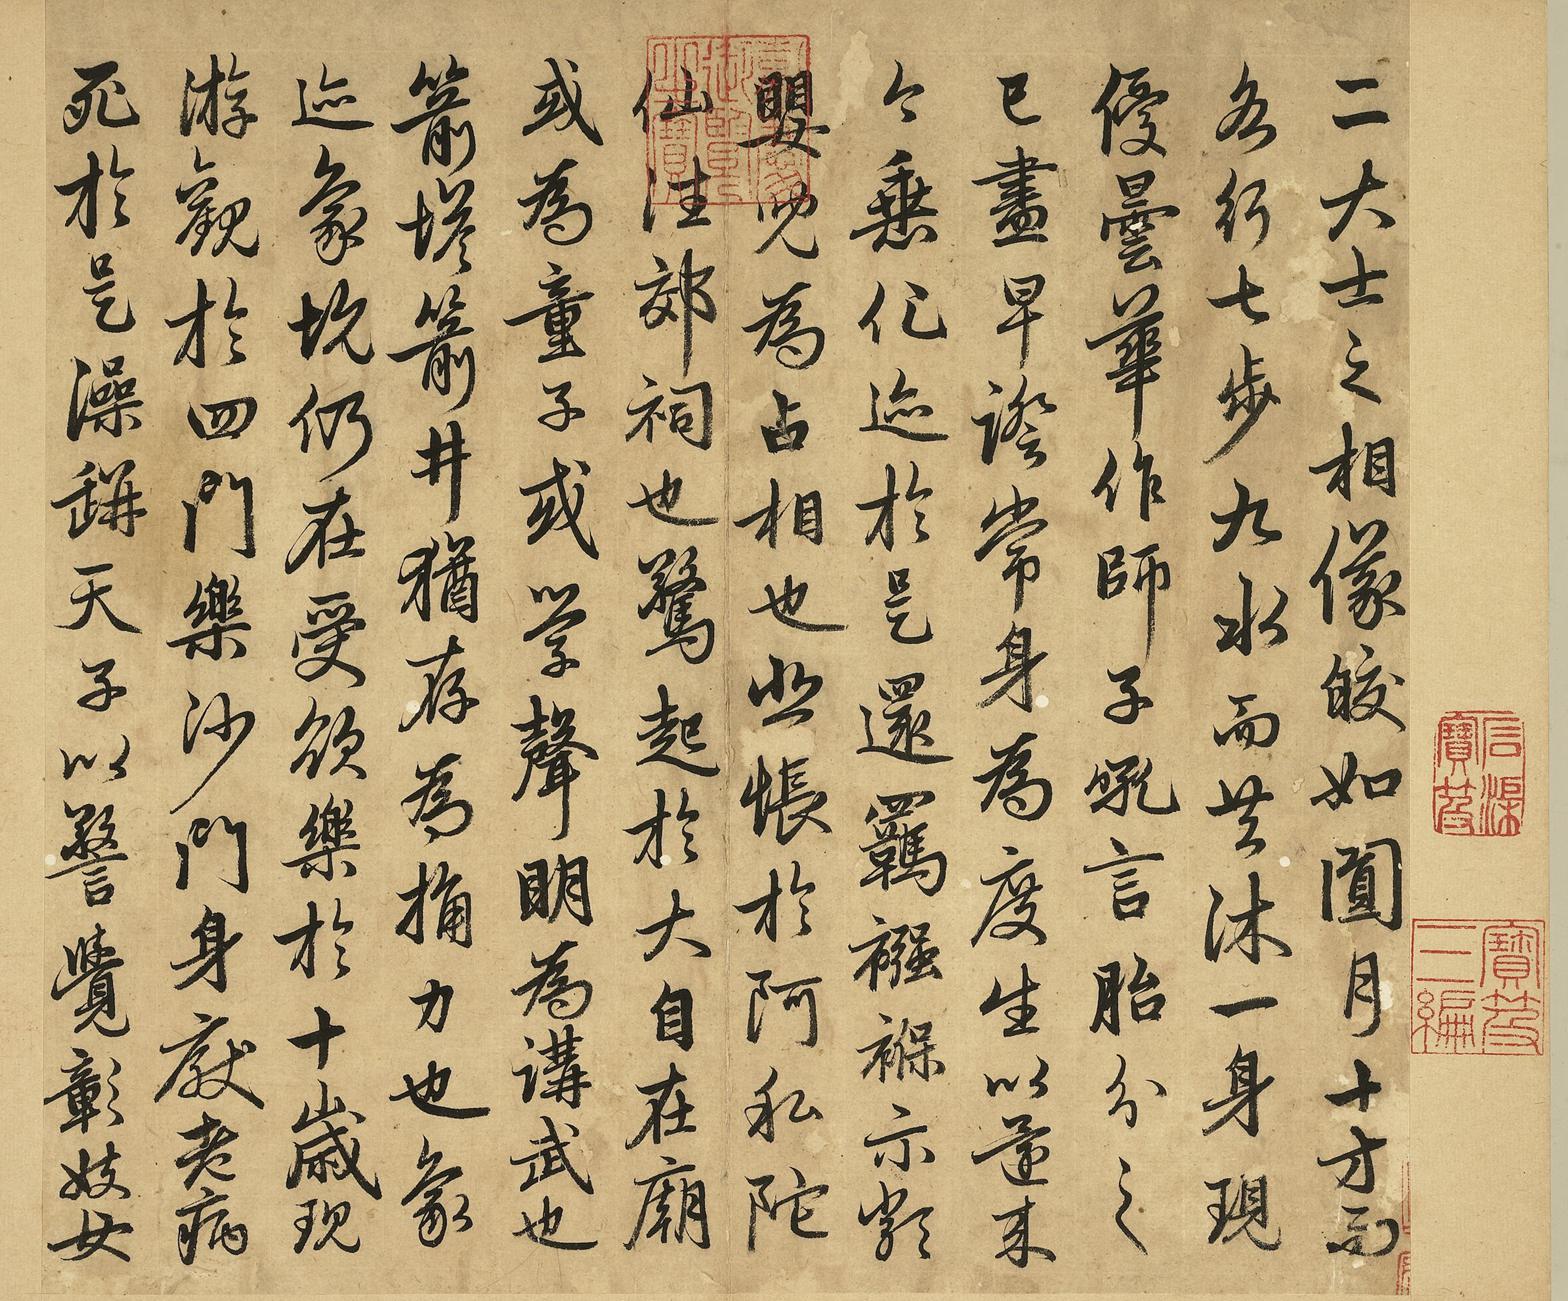 二大士之相像皎如圓月十方而
各行七步九水而共沐一身現
優曇華作師子吼言胎分之
已盡早證常身為度生以還来
今乗化迹於是還羈襁褓示類
嬰兒為占相也悲悵於阿私陀
仙往郊祠也驚起於大自在廟
或為童子或学聲明為講武也
箭塔箭井猶存為捔力也象
迹象坑仍在受欲樂於十歲現
游觀於四門樂沙門身厭老病
死於是澡缾天子以警覺彰妓女
石渠寶笈
寶笈三編